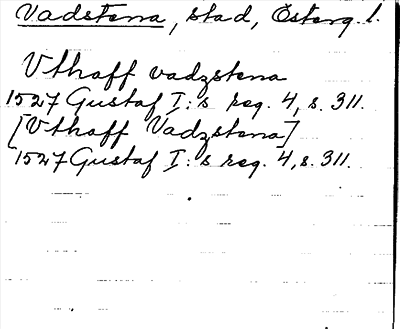 Vadstena, stad, Österg. l.
Vthaff vadzstena
1527 Gustaf I:s reg. 4, s. 311.
[Vthaff Vadzstena]
1527 Gustaf I:s reg. 4, s. 311.